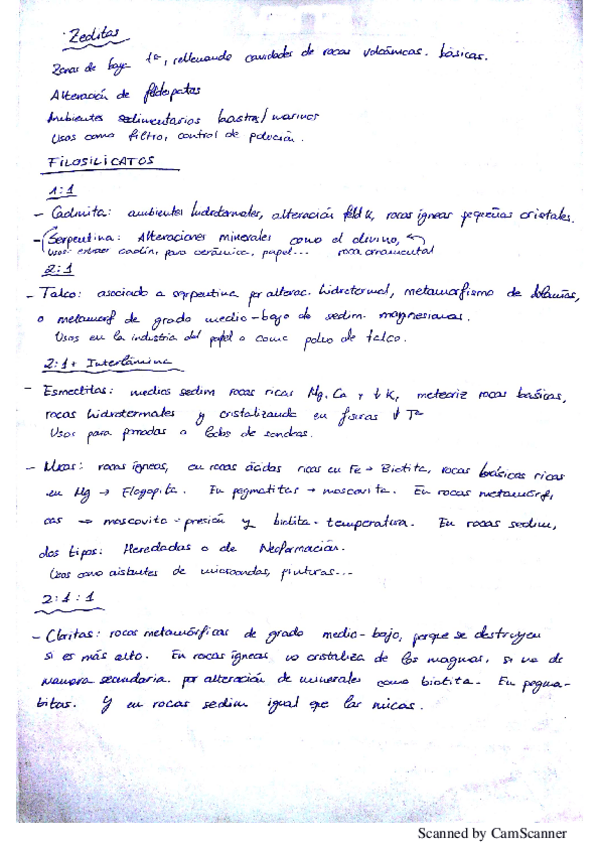 Zeolitas
Zonas de baja tª, rellenando cavidades de rocas volcánicas básicas.
Alteración de feldepatas
Ambientes sedimentarios lacstre/marinos
Usos como filtro, control de polución.
FILOSILICATOS
1:1
- Caolinita: ambientes hidrotermales, alteración feld K, rocas ígneas pequeñas cristales.
- Serpentina: Alteraciones minerales como el olivino,
Usos: extraer caolín, para cerámica, papel... roca ornamental
2:1
- Talco: asociado a serpentina por alterac. hidrotermal, metamorfismo de
o metamorf de grado medio-bajo de sedim. magnesianas.
Usos en la industria del papel o como polvo de talco.
2:1 + Interlámina
- Esmectitas: medios sedim rocas ricas Mg, Ca y ↓ K, meteoriz rocas basicas,
rocas hidrotermales y cristalizando en fisuras ↓ Tª
Usos para pomadas o lodos de sondeos.
- Micas: rocas ígneas, en rocas ácidas ricas en Fe → Biotita, rocas básicas ricas
en Mg → Flogopita. En pegmatitas → moscovita. En rocas metamórfi
cas → moscovita - presión y biotita - temperatura. En rocas sedim,
dos tipos: Heredadas o de Neoformación.
Usos como aislantes de microondas, pinturas...
2:1:1
- Cloritas: rocas metamórficas de grado medio-bajo, porque se destruyen
si es más alto. En rocas ígneas no cristaliza de los magmas, si no de
manera secundaria por alteración de minerales como biotita. En pegma-
titas. Y en rocas sedim igual que las micas.
Scanned by CamScanner